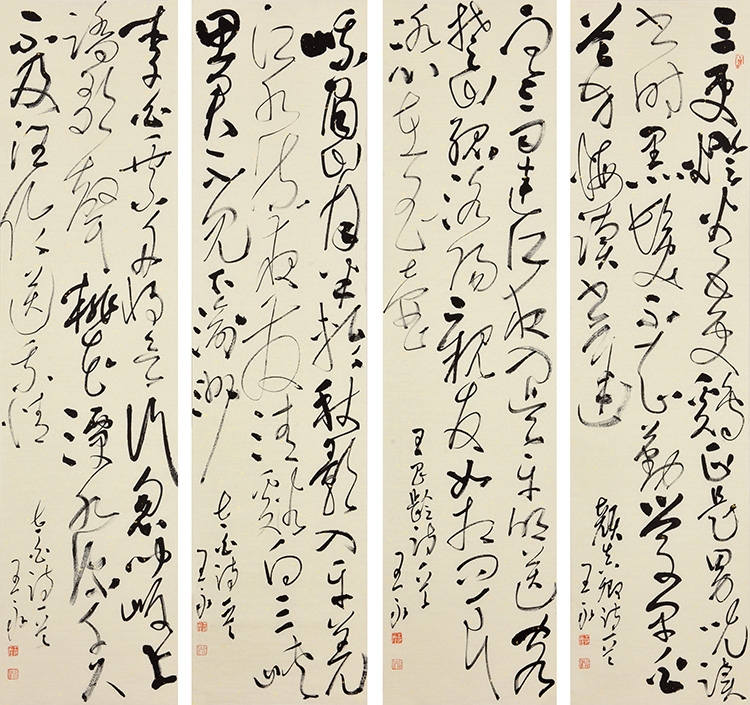 三更燈火五更鷄正是男児读
书时黑髮不知勤学早白
首方悔读书迟
颜真卿诗一首
王永
寒雨連江夜入吴平明送客
楚山孤洛陽親友如相问一片
冰心在玉壺
王昌齡诗一首
王永
峨眉山月半輪秋影入平羌
江水流夜发清溪向三峡
思君不见下渝州
太白诗一首
王永
李白乘舟将欲行忽闻岸上
踏歌聲桃花潭水深千尺
不及汪倫送我情
太白诗一首
王永